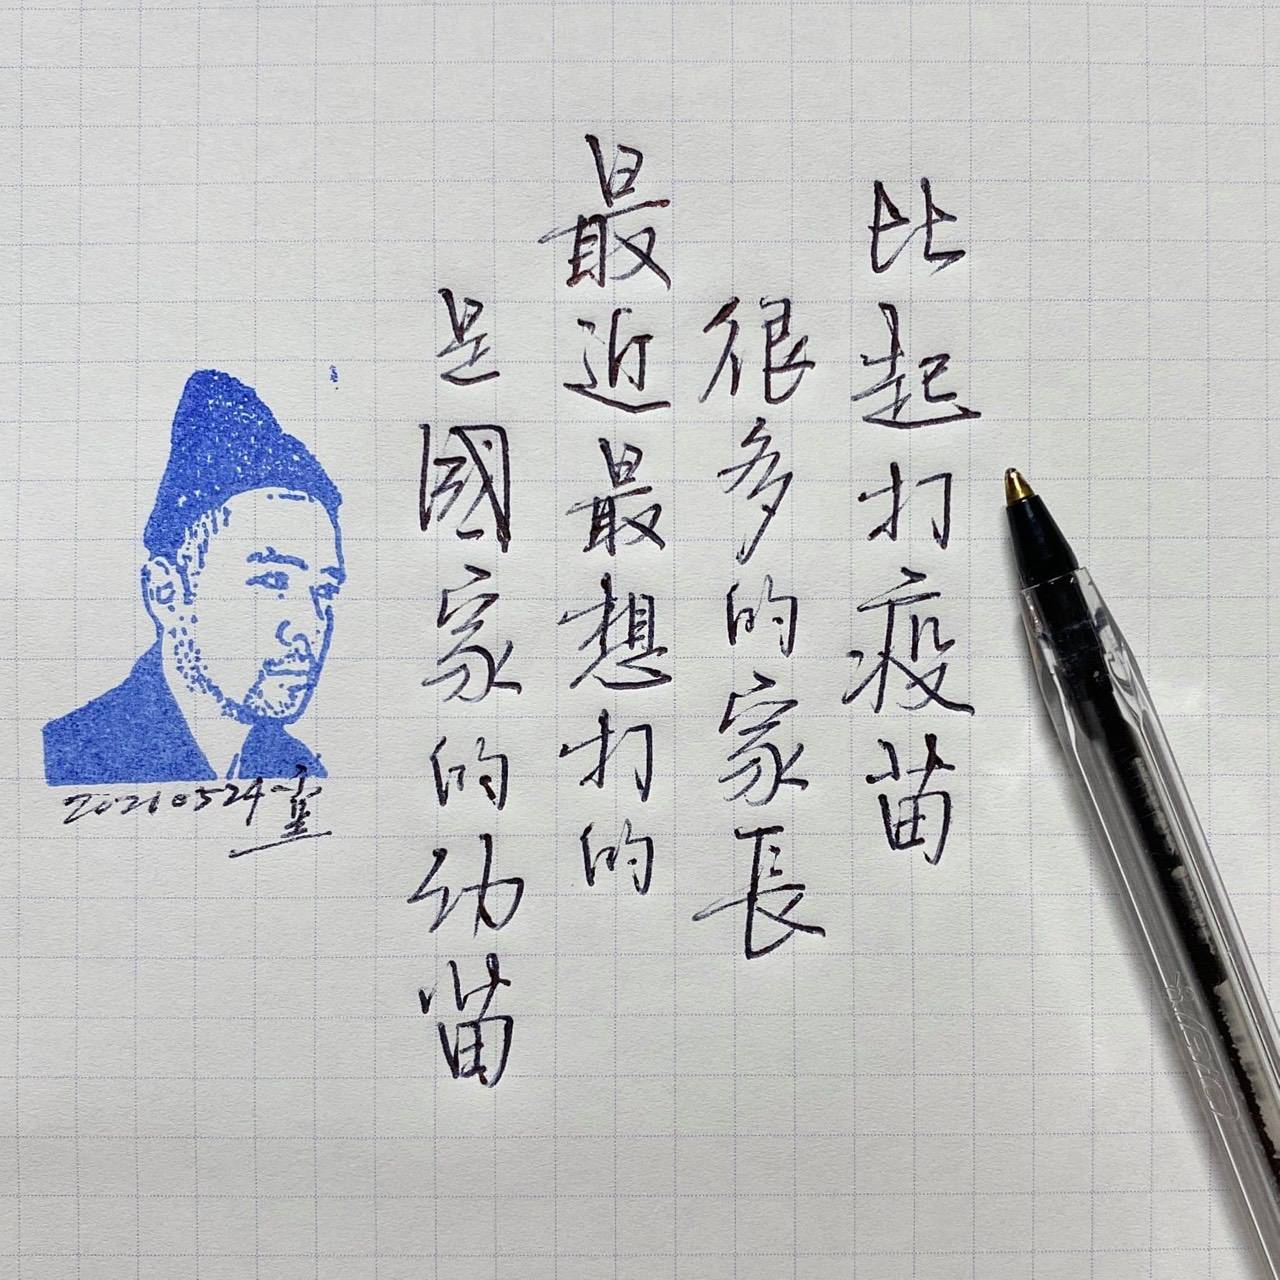 比起打疫苗
很多的家長
最近最想打的
是國家的幼苗
20210524